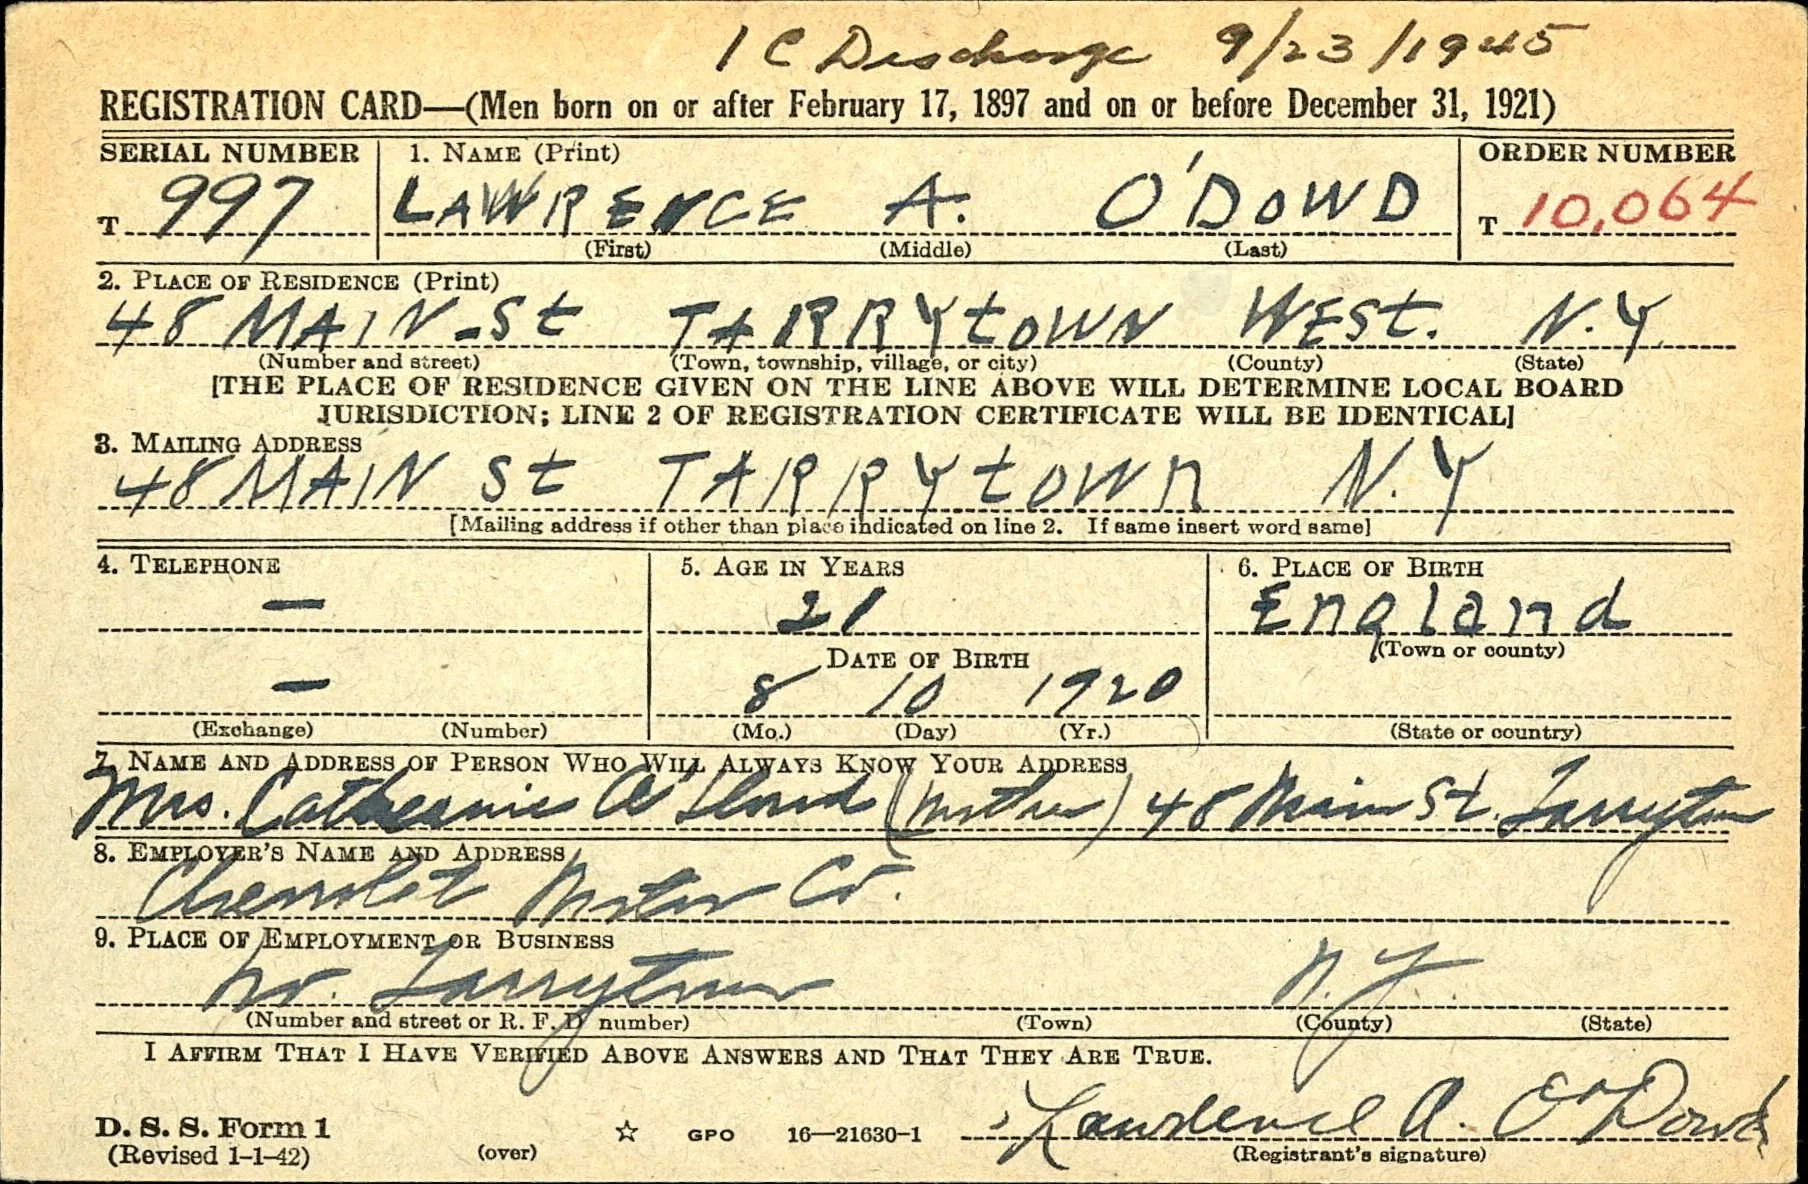 1 C Discharge 9/23/1945
REGISTRATION CARD—(Men born on or after February 17, 1897 and on or before December 31, 1921)
SERIAL NUMBER 1. NAME (Print) ORDER NUMBER
T 997 LAWRENCE A. O'DOWD T 10,064
(First) (Middle) (Last)
2. PLACE OF RESIDENCE (Print)
48 MAIN-St TARRYtOWN WESt. N.Y.
(Number and street) (Town, township, village, or city) (County) (State)
[THE PLACE OF RESIDENCE GIVEN ON THE LINE ABOVE WILL DETERMINE LOCAL BOARD
JURISDICTION; LINE 2 OF REGISTRATION CERTIFICATE WILL BE IDENTICAL]
3. MAILING ADDRESS
48 MAIN St TARRYtOWn N.Y
[Mailing address if other than place indicated on line 2. If same insert word same]
4. TELEPHONE 5. AGE IN YEARS 6. PLACE OF BIRTH
— 21 England
DATE OF BIRTH (Town or county)
— 8 10 1920
(Exchange) (Number) (Mo.) (Day) (Yr.) (State or country)
7. NAME AND ADDRESS OF PERSON WHO WILL ALWAYS KNOW YOUR ADDRESS
Mrs. Catherine O'Dowd (Mother) 48 Main St. Tarrytown
8. EMPLOYER'S NAME AND ADDRESS
Chevrolet Motor Co.
9. PLACE OF EMPLOYMENT OR BUSINESS
No. Tarrytown N.Y.
(Number and street or R. F. D. number) (Town) (County) (State)
I AFFIRM THAT I HAVE VERIFIED ABOVE ANSWERS AND THAT THEY ARE TRUE.
Lawrence A. O'Dowd
D. S. S. Form 1
(Revised 1-1-42) (over) ☆ GPO 16—21630-1 (Registrant's signature)